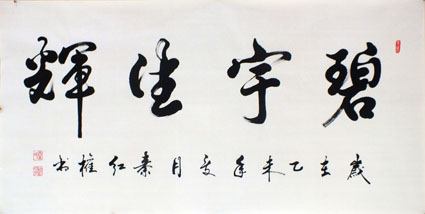 碧宇佳輝
歲在乙未年夏月秦红權书